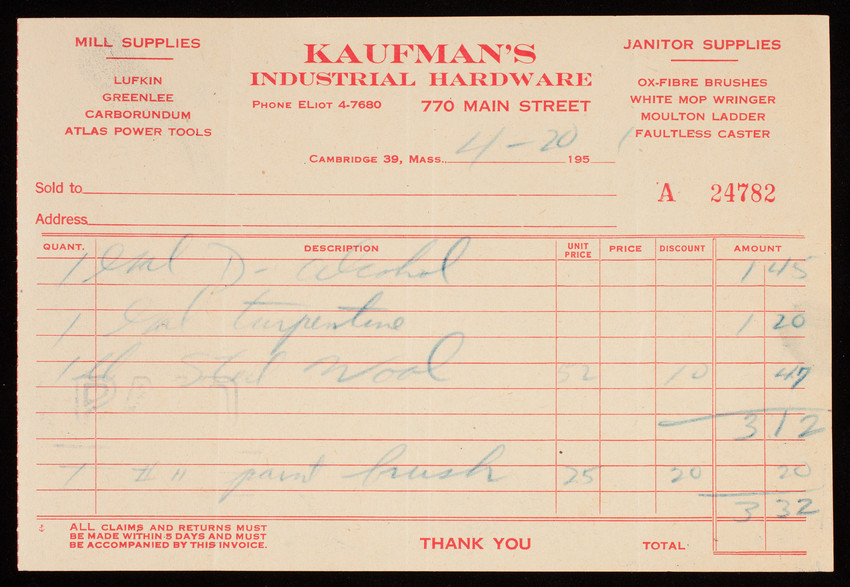 MILL SUPPLIES
LUFKIN
GREENLEE
CARBORUNDUM
ATLAS POWER TOOLS
KAUFMAN'S
INDUSTRIAL HARDWARE
PHONE ELIOT 4-7680 770 MAIN STREET
JANITOR SUPPLIES
OX-FIBRE BRUSHES
WHITE MOP WRINGER
MOULTON LADDER
FAULTLESS CASTER
CAMBRIDGE 39, MASS. 4-20 195
Sold to
A 24782
Address
QUANT. DESCRIPTION UNIT PRICE PRICE DISCOUNT AMOUNT
1 Gal D- alcohol 1 45
1 Gal turpentine 1 20
1 lb Steel Wool 52 10 47
3 12
1 1" paint brush 25 20 20
3 32
ALL CLAIMS AND RETURNS MUST
BE MADE WITHIN 5 DAYS AND MUST
BE ACCOMPANIED BY THIS INVOICE.
THANK YOU
TOTAL